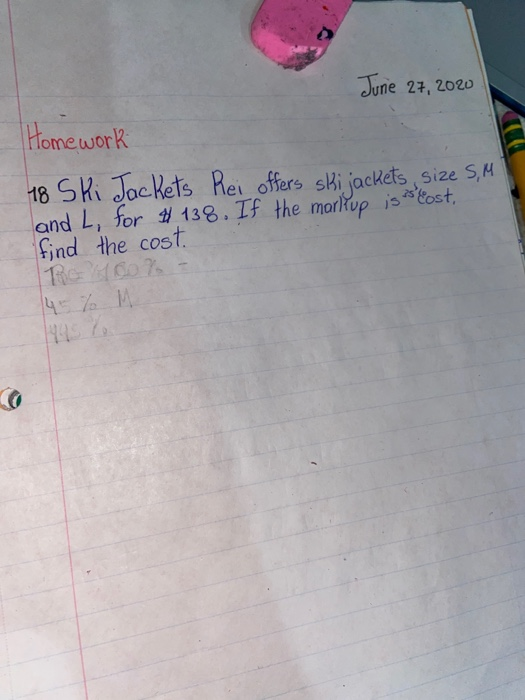 June 27, 2020
Homework
18 Ski Jackets Rei offers ski jackets, size S, M
and L, for $138. If the markup is 25% cost,
find the cost.
45% M